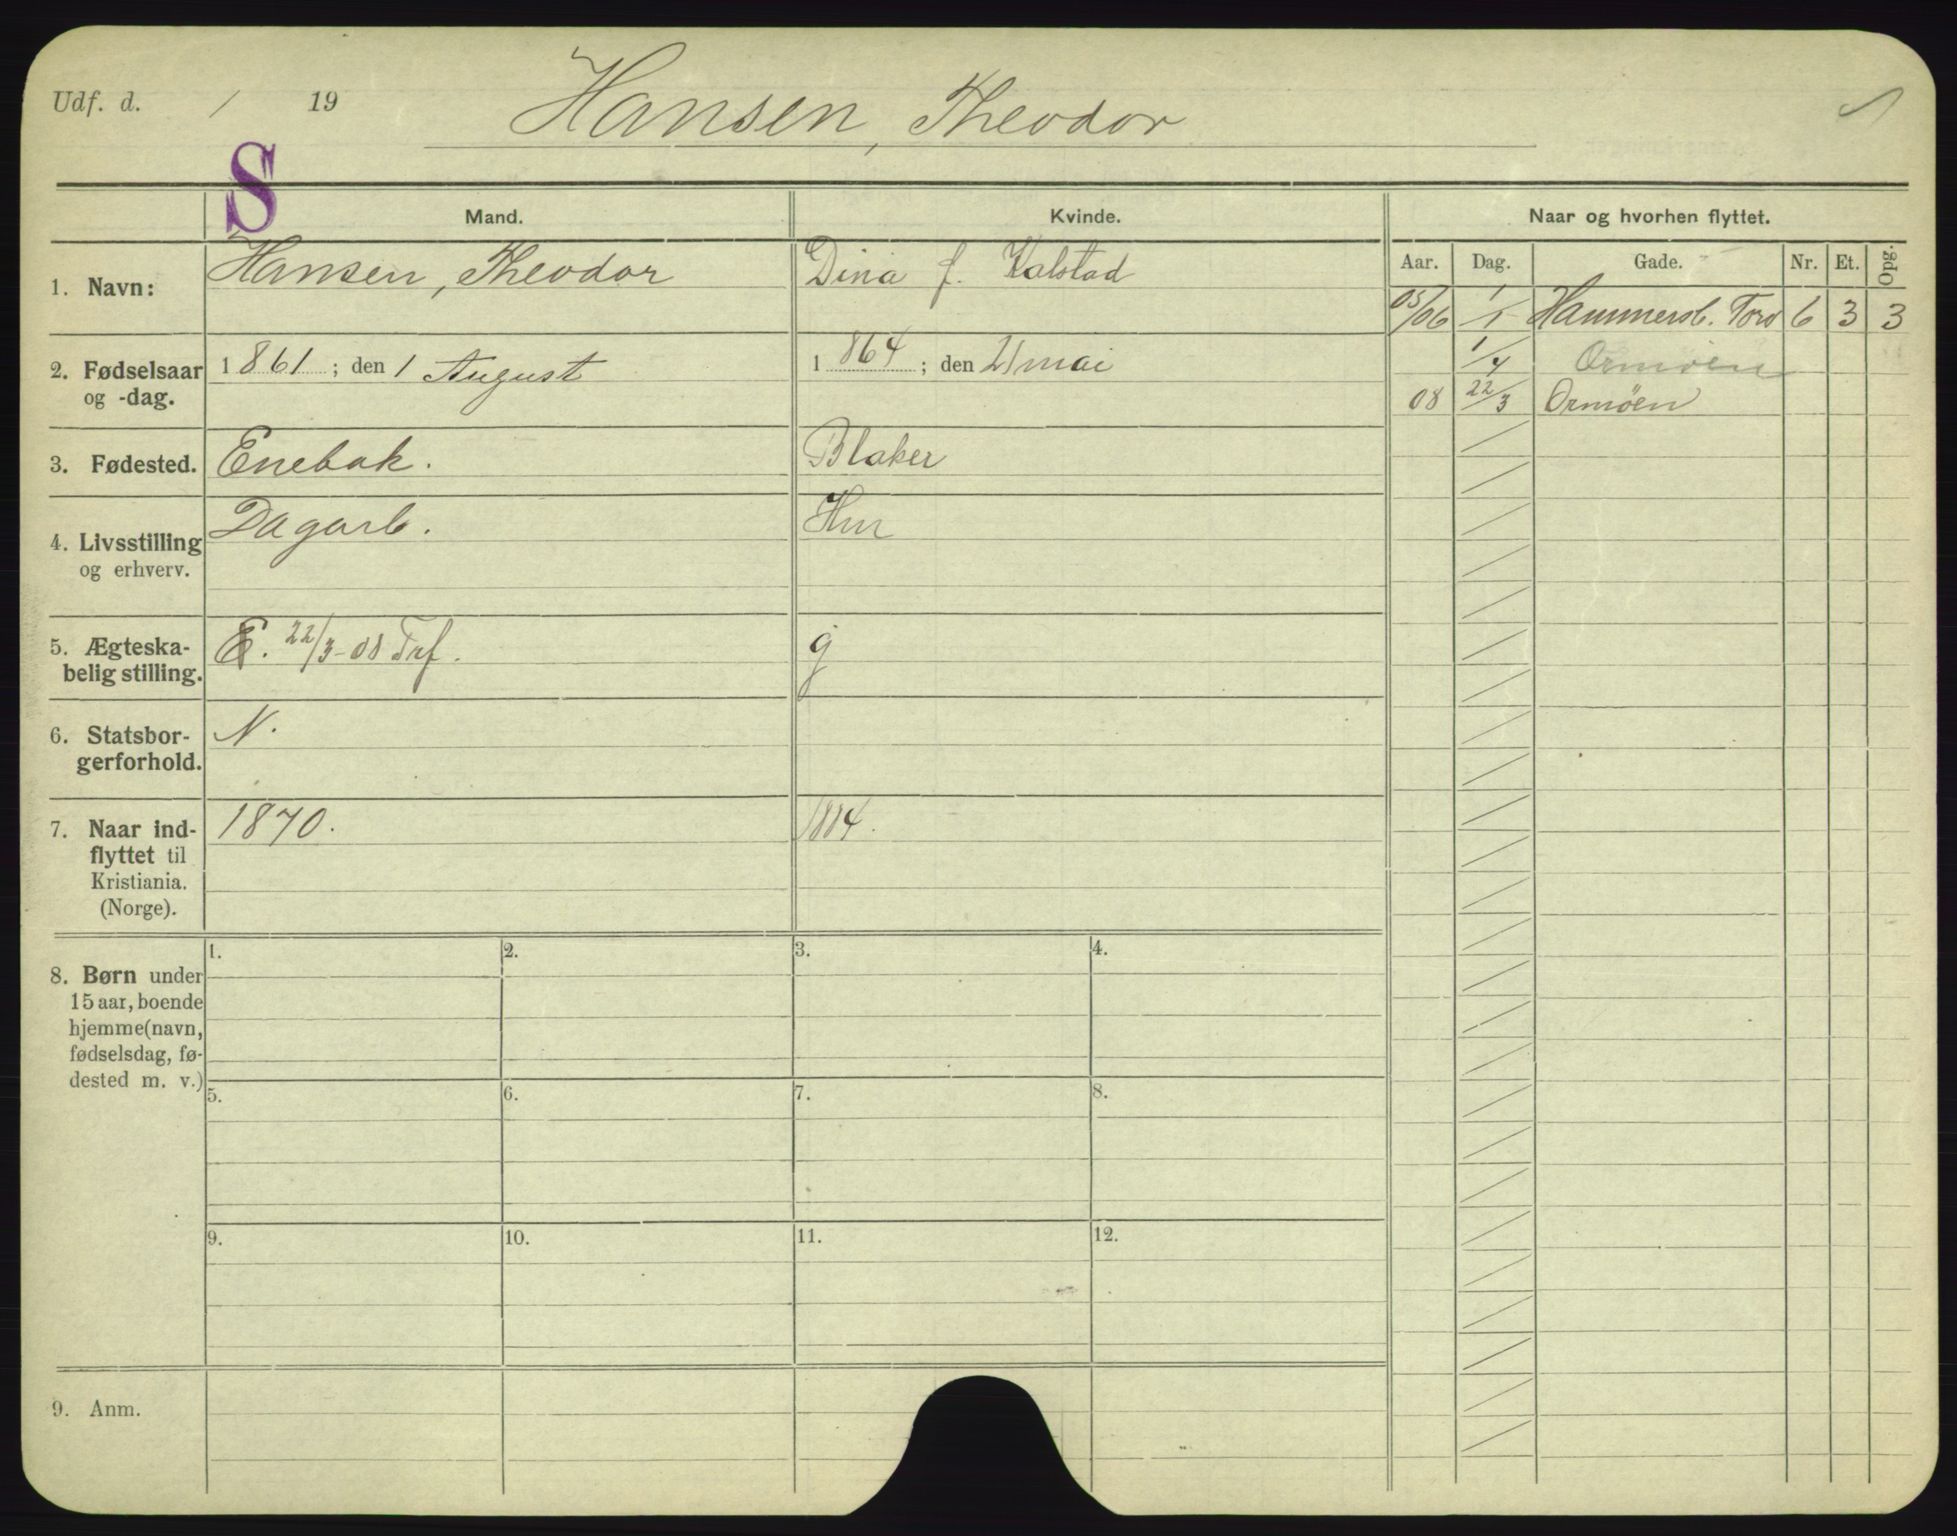 Udf. d. / 19 Hansen, Theodor
S
Mand. Kvinde. Naar og hvorhen flyttet.
Aar. Dag. Gade. Nr. Et. Opg.
1. Navn: Hansen, Theodor Dina f. Kalstad
05/06 1/1 Hammersb. Torv 6 3 3
2. Fødselsaar og -dag. 1861; den 1 August 1864; den 21 mai
1/4 Ormøen
08 22/3 Ormöen
3. Fødested. Enebak. Blaker
4. Livsstilling og erhverv. Dagarb. Hur
5. Ægteska-
belig stilling. E. 22/3-08 Trf. g
6. Statsbor-
gerforhold. N.
7. Naar ind-
flyttet til
Kristiania.
(Norge). 1870. 1884.
8. Børn under
15 aar, boende
hjemme (navn,
fødselsdag, fø-
dested m. v.)
1. 2. 3. 4.
5. 6. 7. 8.
9. 10. 11. 12.
9. Anm.